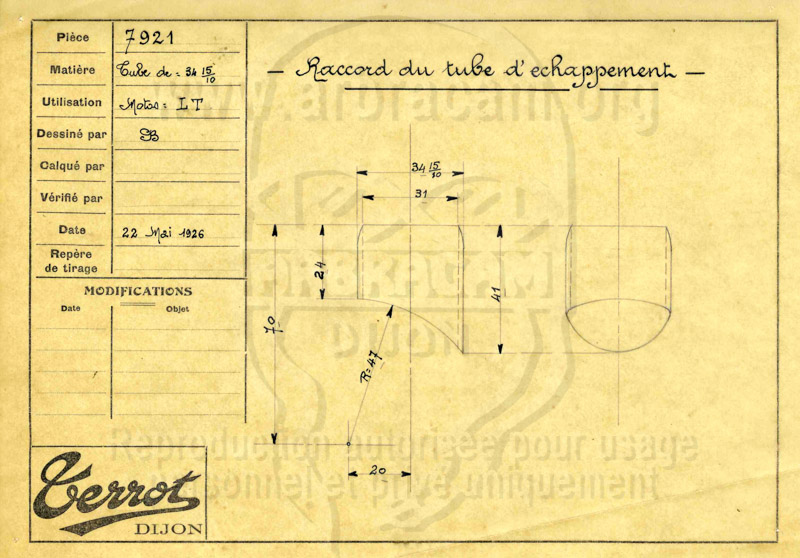 Pièce 7921
Matière Tube de = 34 15/10
Utilisation Motos = LT
Dessiné par SB
Calqué par
Vérifié par
Date 22 Mai 1926
Repère
de tirage
MODIFICATIONS
Date Objet
— Raccord du tube d'echappement —
34 15/10
31
24
41
70
R=47
20
Terrot
DIJON
www.arbracam.org
ARBRACAM
DIJON
Reproduction autorisée pour usage
personnel et privé uniquement